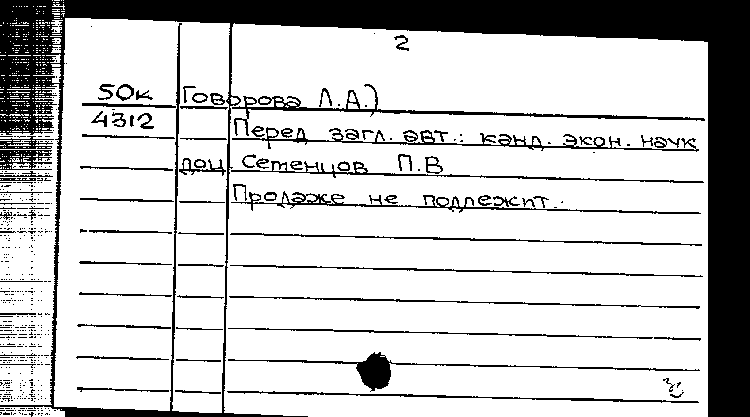 2
50к Говорова Л.А.)
4312 Перед загл. авт.: канд. экон. наук
доц. Сетенцов П.В
Продаже не подлежит.